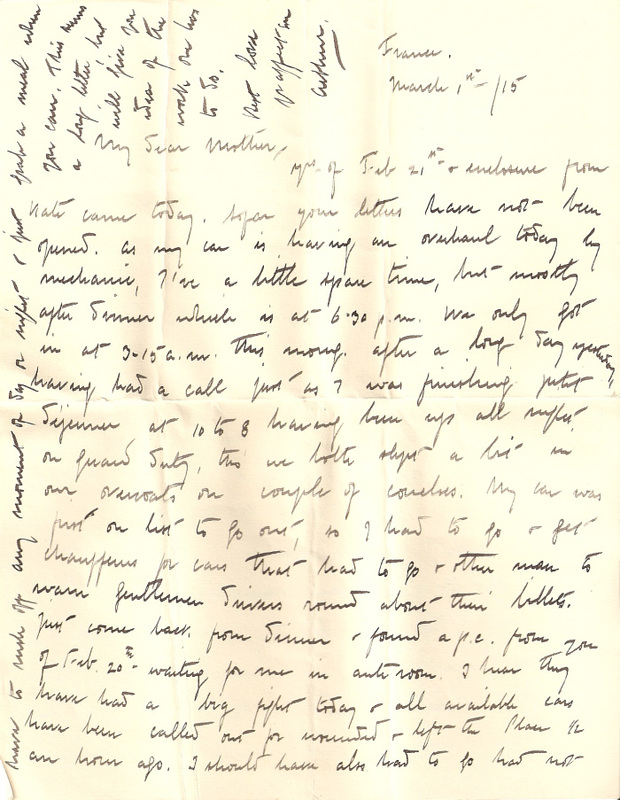 France.
March 1st /15
My Dear Mother,
yrs of Feb 21st & enclosure from
Kate came today. So far your letters have not been
opened. As my car is having an overhaul today by
mechanic, I've a little spare time, but mostly
after dinner which is at 6.30 p.m. We only got
in at 3-15 a.m. this morng. after a long day yesterday,
having had a call just as I was finishing petit
dejeuner at 10 to 8 having been up all night
on guard duty, tho we both slept a bit in
our overcoats on couple of couches. My car was
first on list to go out, so I had to go & get
chauffeurs for cars that had to go & other man to
warn gentlemen drivers round about their billets.
Just come back from dinner & found a p.c. from you
of Feb. 20th waiting for me in ante room. I hear they
have had a big fight today & all available cars
have been called out for wounded & left the place ½
an hour ago. I should have also had to go had not
have to rush off any moment of day or night & just
snatch a meal when
you can. This seems
a long letter, but
will give you
idea of the
work one has
to do.
Best love
Yr affect. son
Arthur.